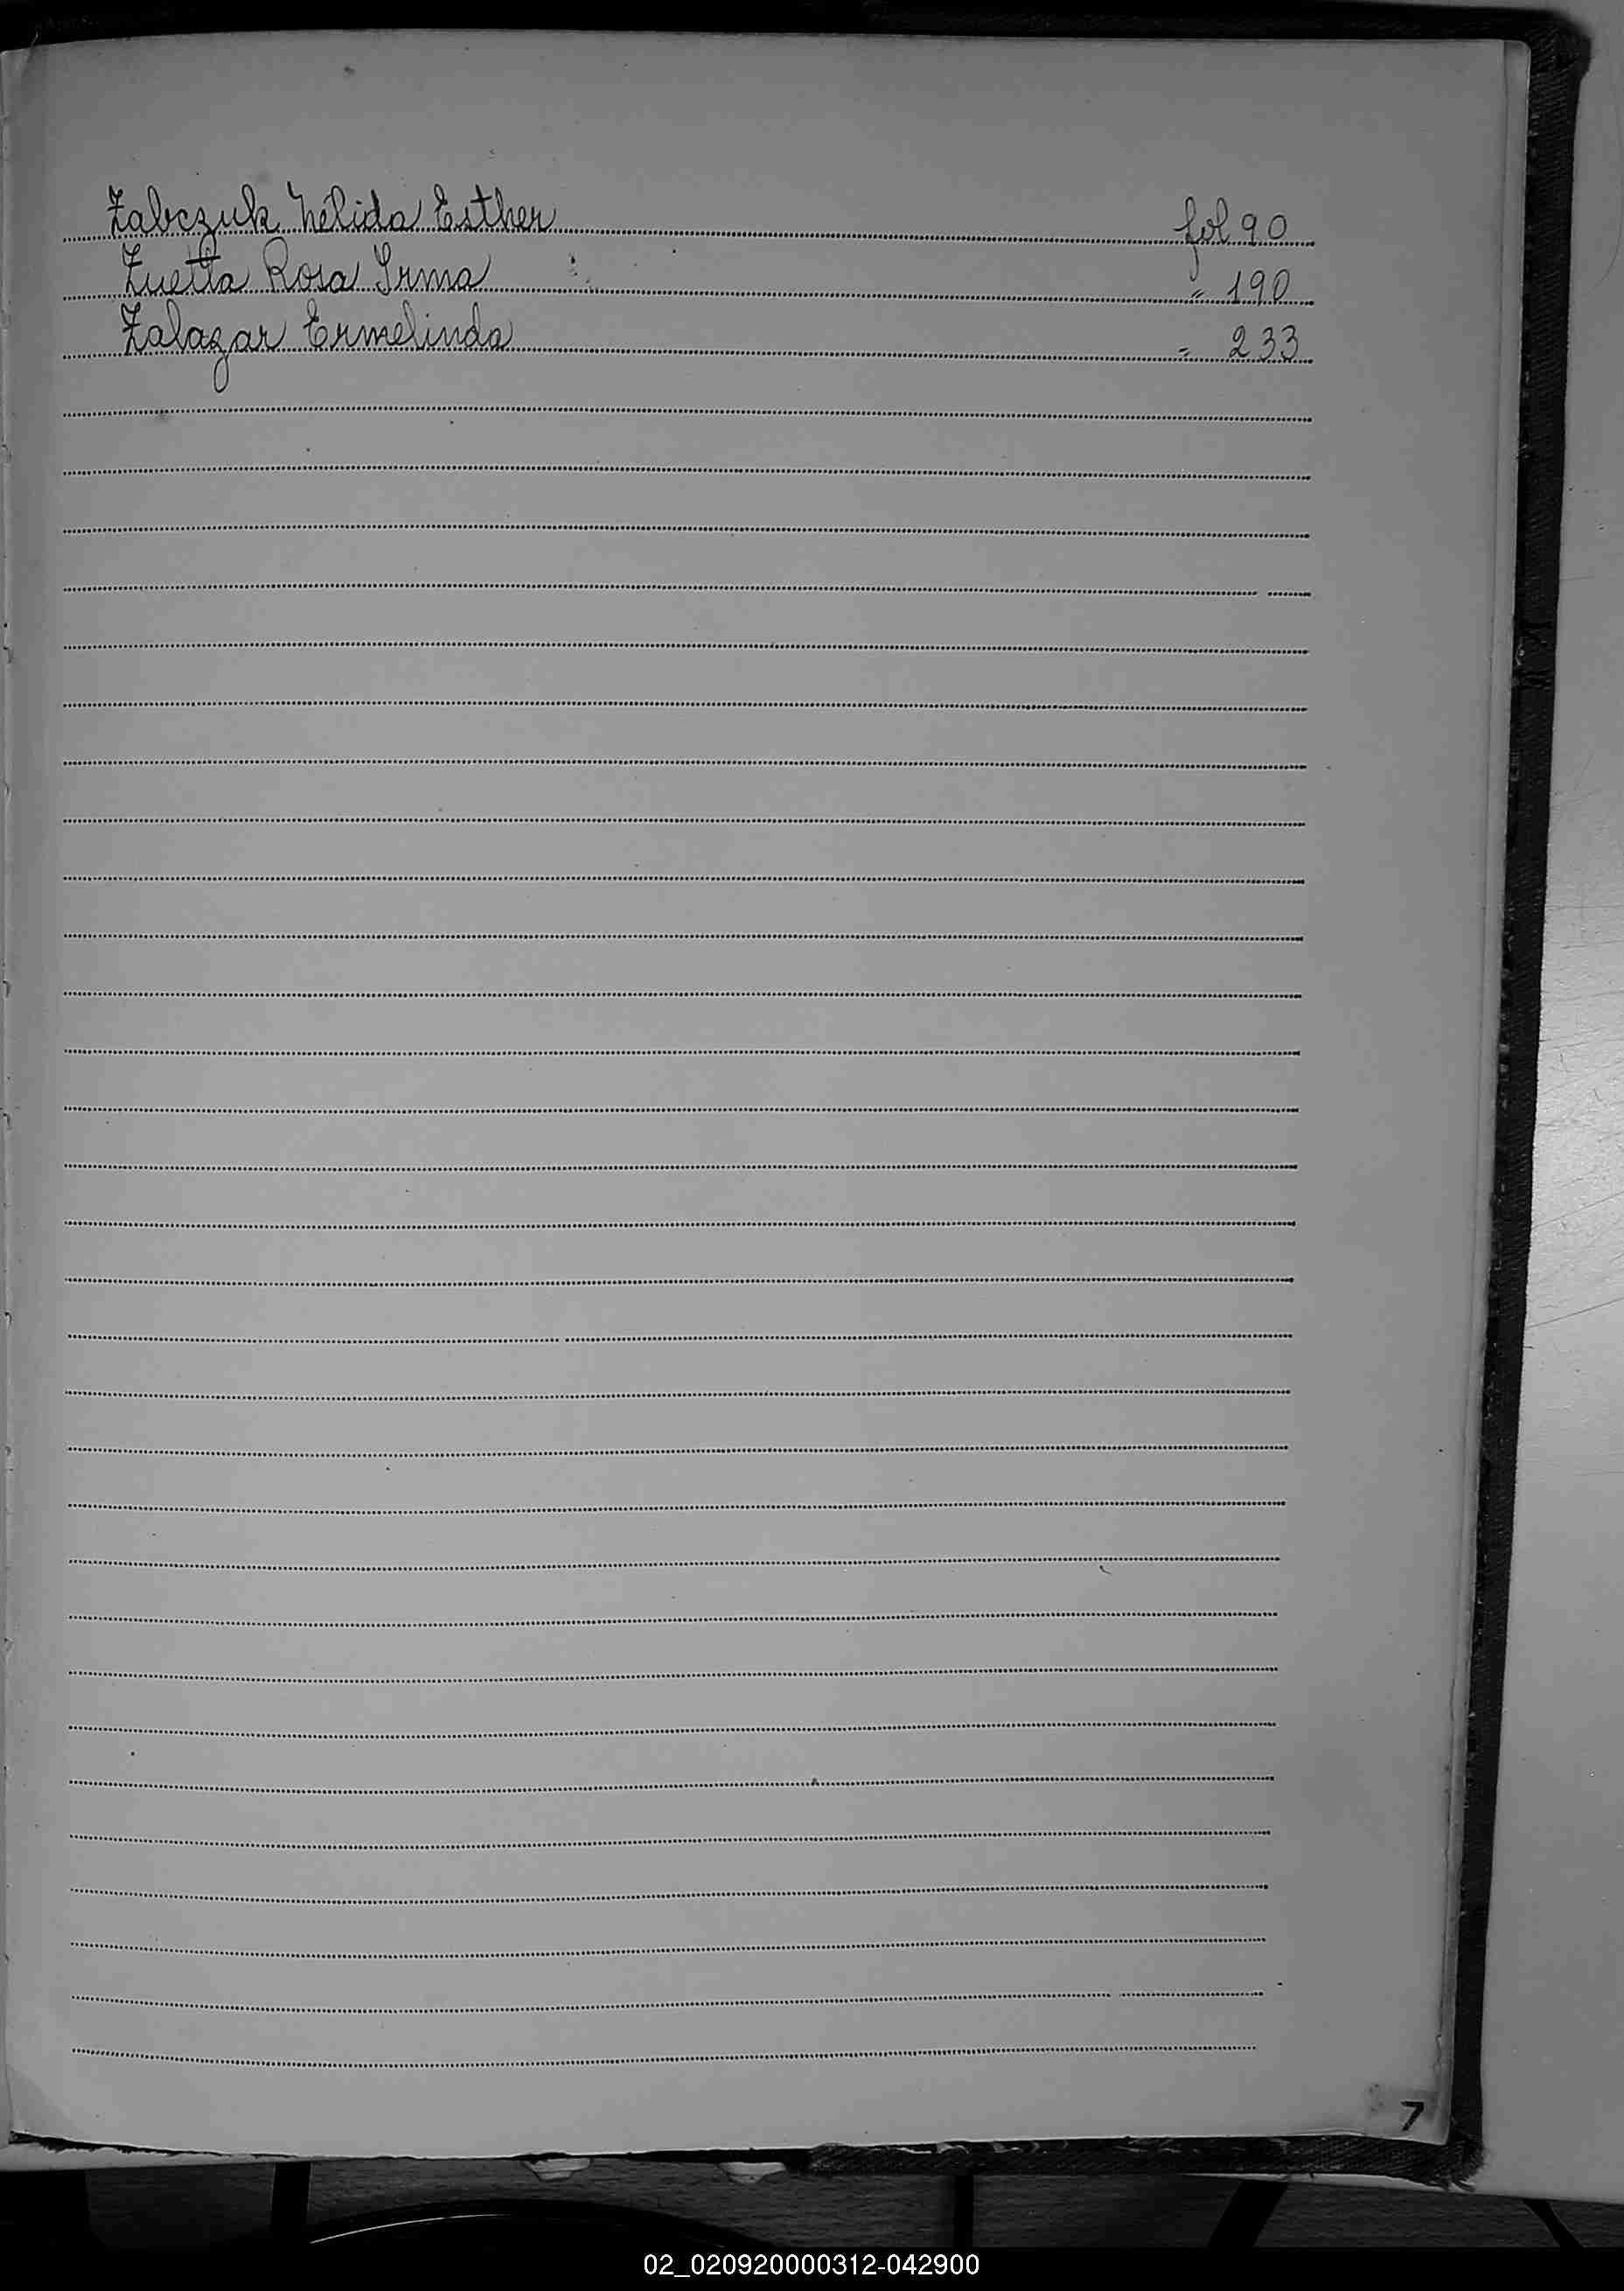 Zabczuk Nélida Esther fol 90
Zuetta Rosa Irma " 190
Zalazar Ermelinda " 233
7
02_020920000312-042900